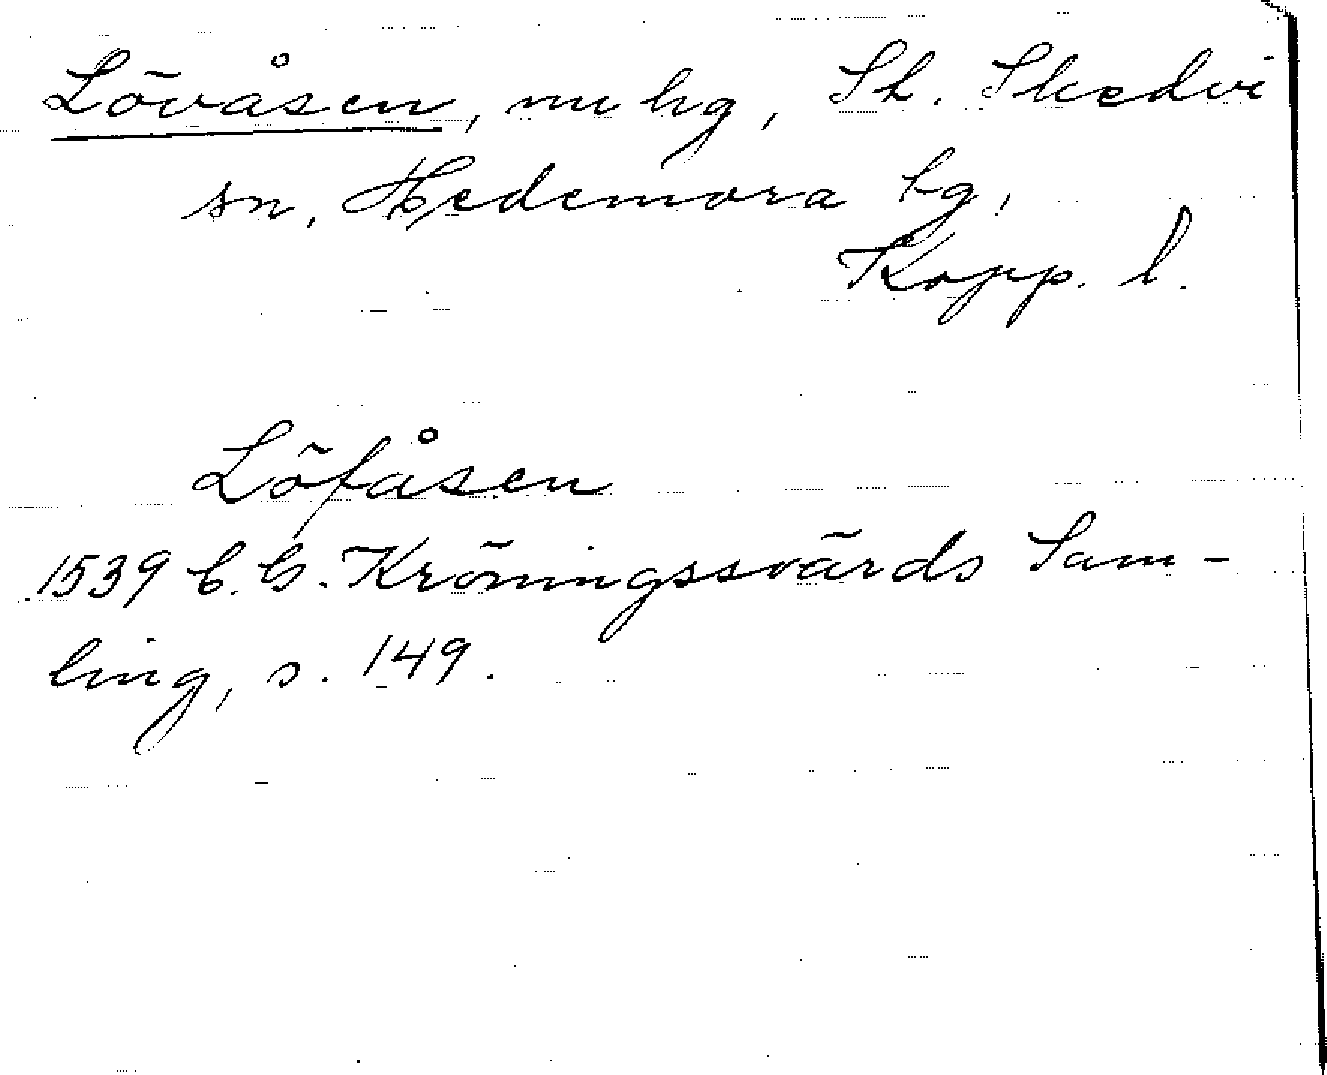 Lövåsen, nu hg, St. Skedvi
sn, Hedemora tg,
Kopp. l.
Löfåsen
1539 C. G. Kröningssvärds Sam-
ling, s. 149.